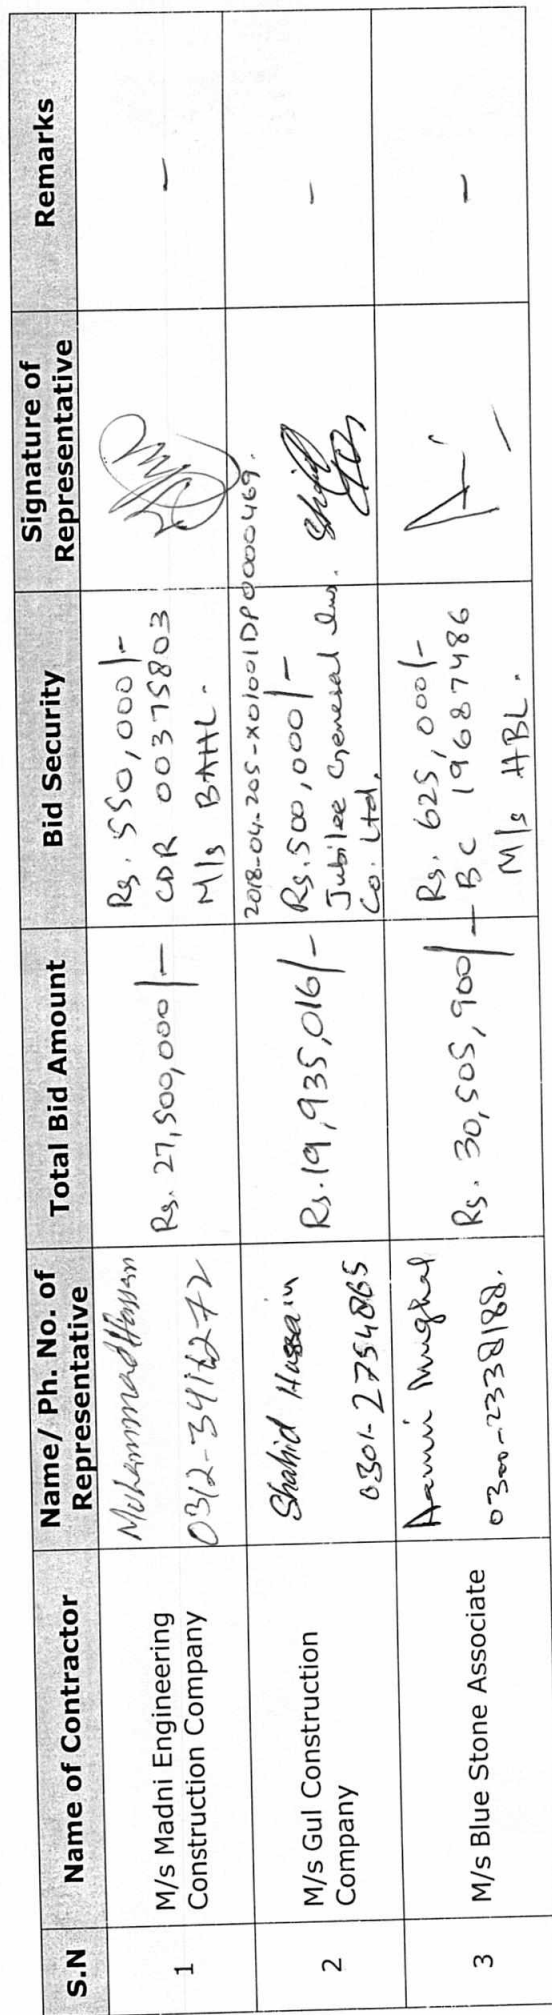 S.N
Name of Contractor
Name/ Ph. No. of
Representative
Total Bid Amount
Bid Security
Signature of
Representative
Remarks
1
M/s Madni Engineering
Construction Company
Muhammad Hassan
0312-3416272
Rs. 27,500,000/-
Rs. 550,000/-
CDR 00375803
M/s BAHL.
-
2
M/s Gul Construction
Company
Shahid Hussain
0301-2754865
Rs. 19,935,016/-
2018-04-205-X01001DP0000469.
Rs. 500,000/-
Jubilee General Ins.
Co. Ltd.
-
3
M/s Blue Stone Associate
Aamir Mughal
0300-2338188.
Rs. 30,505,900/-
Rs. 625,000/-
BC 19687486
M/s HBL.
-